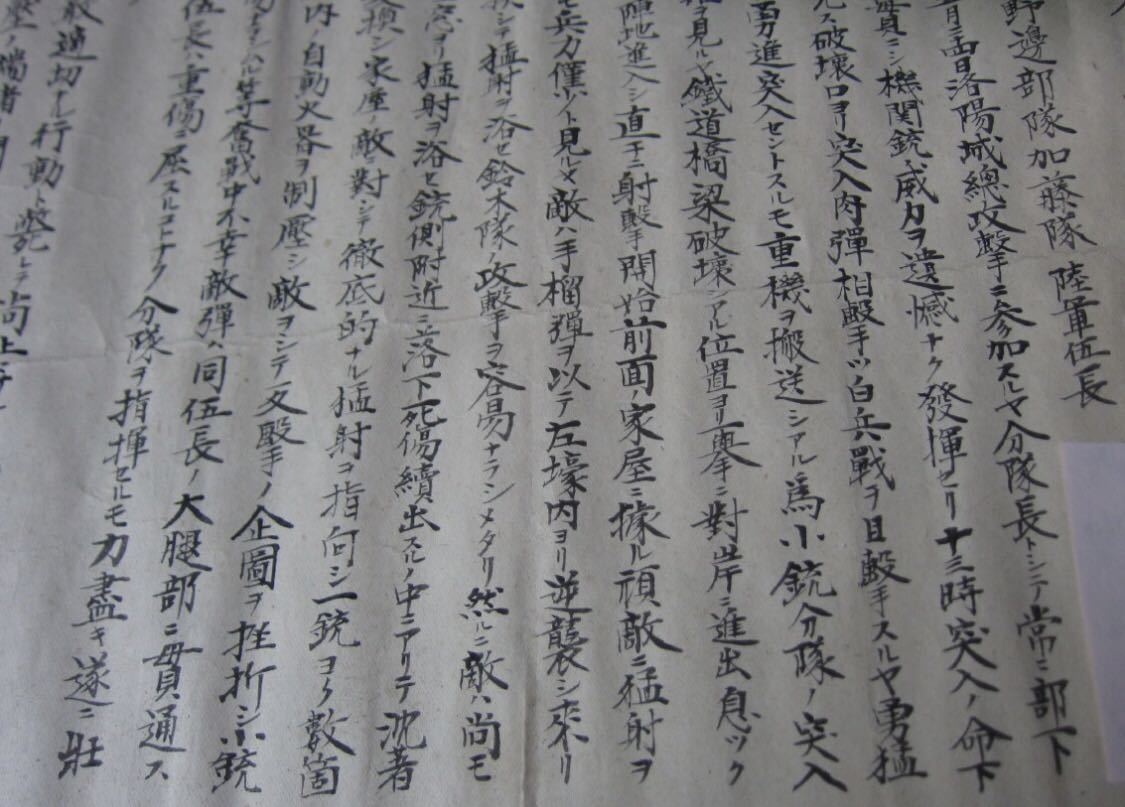 野邊部隊加藤隊 陸軍伍長
五月二四日洛陽城總攻擊ニ參加スルヤ分隊長トシテ常ニ部下
機関銃威力ヲ遺憾ナク發揮セリ 十三時突入ノ命下
破壊口ヨリ突入肉彈相擊チツ白兵戰ヲ目擊スルヤ勇猛
進突入セントスルモ重機ヲ搬送シアル為小銃分隊ノ突入
見ルヤ鐵道橋梁破壊シアル位置ヨリ一擧ニ對岸ニ進出息ツク
陣地進入シ直チニ射擊開始前面ノ家屋ニ據ル頑敵ニ猛射ヲ
兵力僅少ト見ルヤ敵ハ手榴彈ヲ以テ左壕内ヨリ逆襲シ来リ
猛射ヲ浴セ鈴木隊ノ攻擊ヲ容易ナラシメタリ 然ルニ敵ハ尚モ
猛射ヲ浴セ銃側附近ニ落下死傷續出スルノ中ニアリテ沈着
換シ家屋ノ敵ニ對シテ徹底的ナル猛射ヲ指向シ一銃ヨク數箇
内ノ自動火器ヲ制壓シ敵ヲシテ反擊ノ企圖ヲ挫折シ小銃
奮戰中不幸敵彈ハ同伍長ノ大腿部ニ貫通ス
伍長ハ重傷ニ屈スルコトナク分隊ヲ指揮セルモ力盡キ遂ニ壯
適切ナル行動ト斃レテ尚